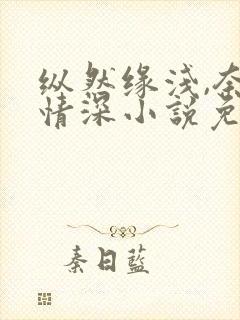 纵然缘浅,奈
情深小説免
秦日藍